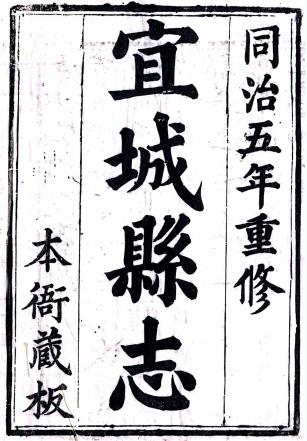 同治五年重修
宜城縣志
本衙蔵板